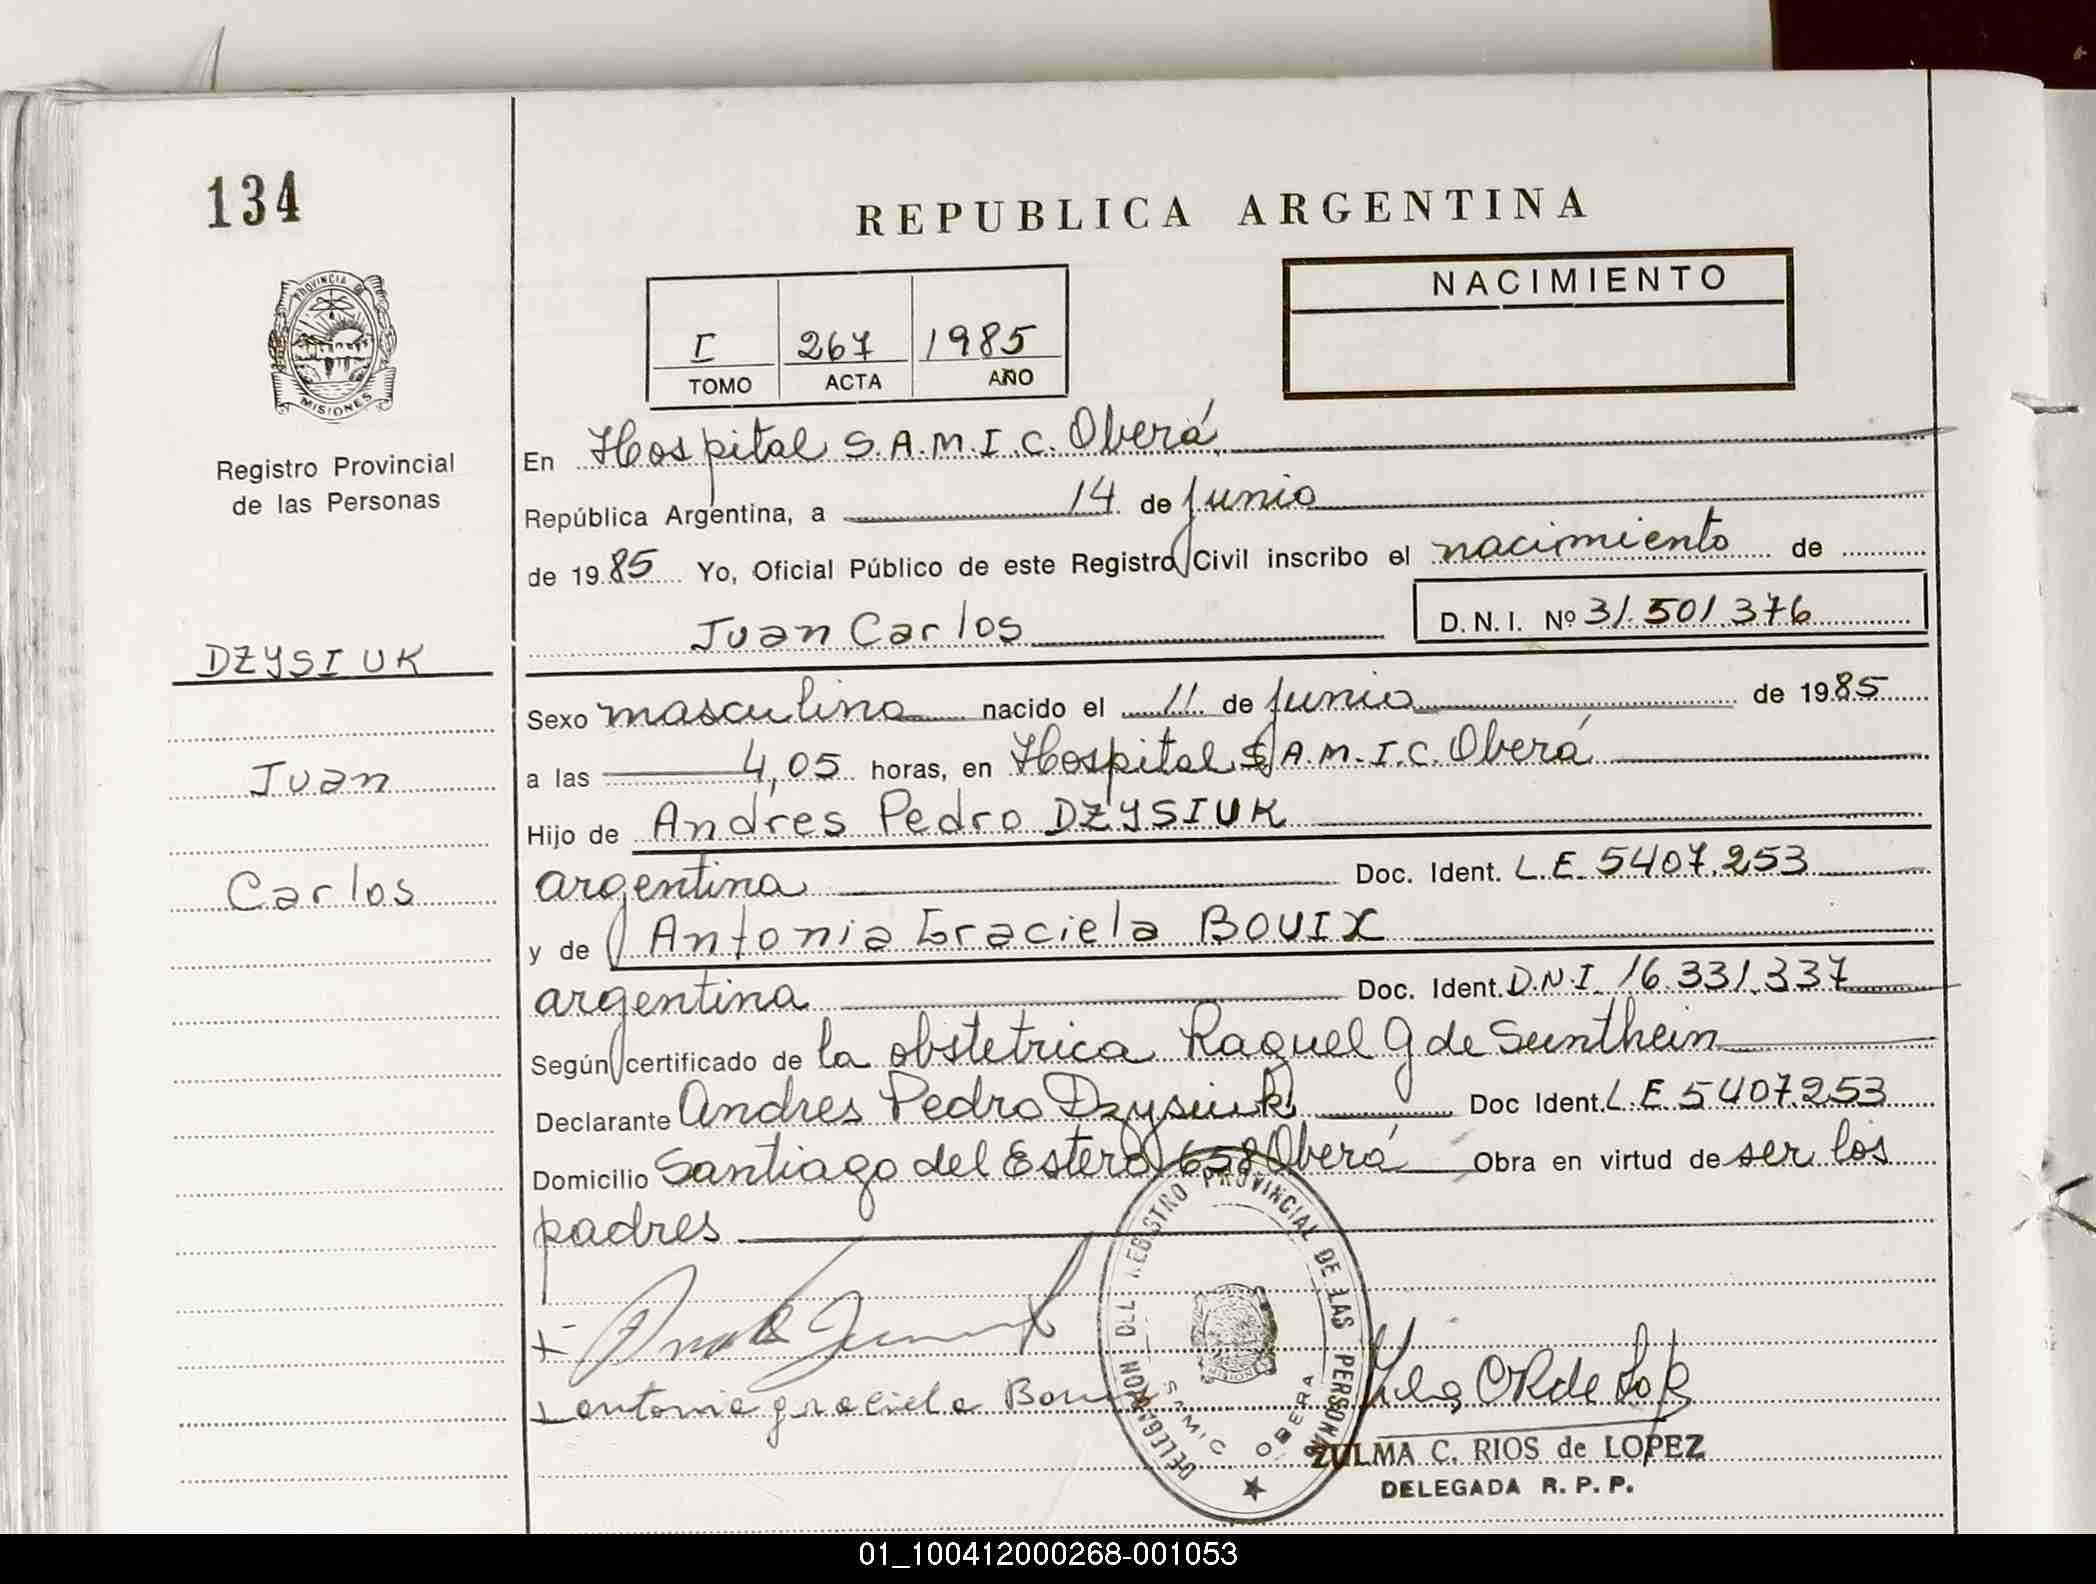 134
REPUBLICA ARGENTINA
PROVINCIA DE
MISIONES
Registro Provincial
de las Personas
NACIMIENTO
I 267 1985
TOMO ACTA AÑO
En Hospital S.A.M.I.C. Oberá
República Argentina, a 14 de junio
de 1985 Yo, Oficial Público de este Registro Civil inscribo el nacimiento de
Juan Carlos D.N.I. Nº 31.501.376
DZYSIUK
Juan
Carlos
Sexo masculino nacido el 11 de junio de 1985
a las 4,05 horas, en Hospital S.A.M.I.C. Oberá
Hijo de Andres Pedro DZYSIUK
argentina Doc. Ident. L.E. 5407.253
y de Antonia Graciela BOUIX
argentina Doc. Ident. D.N.I. 16.331.337
Según certificado de la obstetrica Raquel G de Sunthein
Declarante Andres Pedro Dzysiuk Doc Ident. L.E. 5407.253
Domicilio Santiago del Estero 658 Oberá Obra en virtud de ser los
padres
antonia graciela
DELEGACION DEL REGISTRO PROVINCIAL DE LAS PERSONAS
MISIONES
SAMIC OBERA
ZULMA C. RIOS de LOPEZ
DELEGADA R. P. P.
01_100412000268-001053